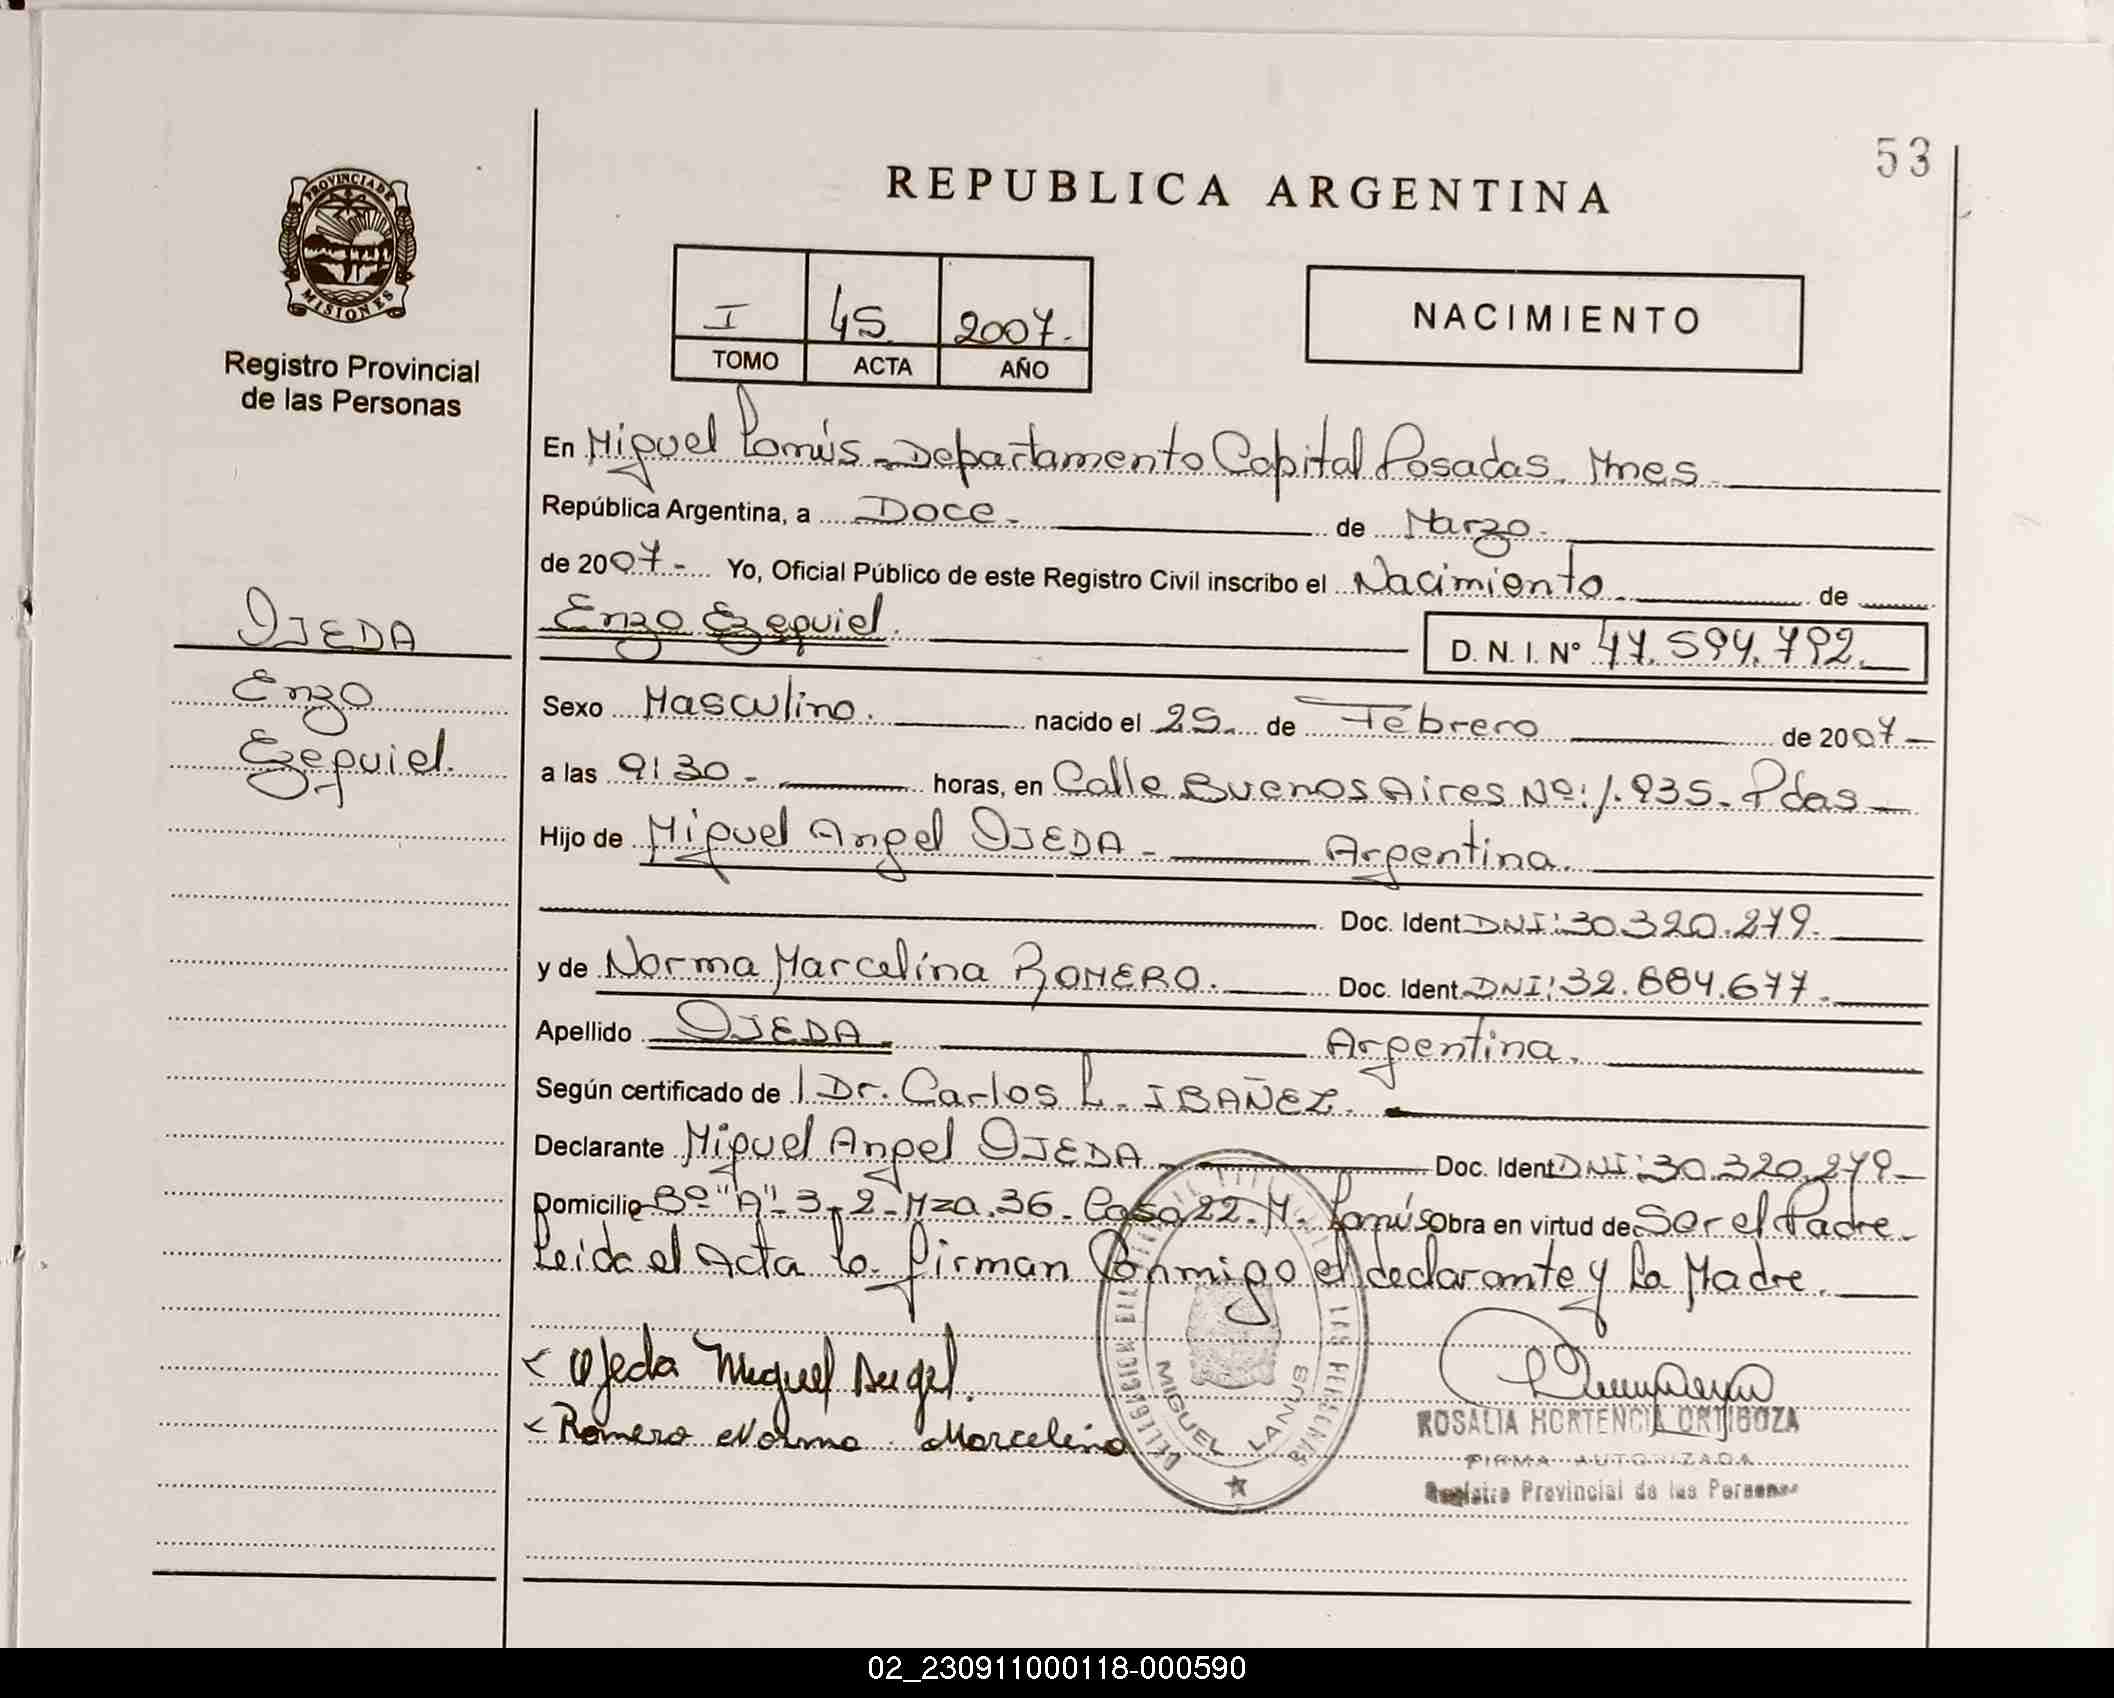 53
PROVINCIA DE
MISIONES
Registro Provincial
de las Personas
REPUBLICA ARGENTINA
I 45. 2007.
TOMO ACTA AÑO
NACIMIENTO
En Miguel Lanús - Departamento Capital Posadas. Mnes
República Argentina, a Doce. de Marzo.
de 2007- Yo, Oficial Público de este Registro Civil inscribo el Nacimiento de
Enzo Ezequiel.
D. N. I. N° 47.594.792.
OJEDA
Enzo
Ezequiel.
Sexo Masculino. nacido el 25. de Febrero de 2007-
a las 9:30 - horas, en Calle Buenos Aires Nº: 1.935. Pdas -
Hijo de Miguel Angel OJEDA - Argentina.
Doc. Ident. DNI: 30.320.279.
y de Norma Marcelina ROMERO. Doc. Ident. DNI: 32.884.677.
Apellido OJEDA. Argentina.
Según certificado de l Dr. Carlos L. IBAÑEZ.
Declarante Miguel Angel OJEDA - Doc. Ident DNI: 30.320.279-
Domicilio Bº "A" 3-2- Mza. 36. Casa 22. M. Lanús Obra en virtud de Ser el Padre.
Leida el Acta la firman Conmigo el declarante y la Madre.
Ojeda Miguel Angel.
Romero Norma Marcelina
MIGUEL LANUS
ROSALIA HORTENCIA ORTIGOZA
FIRMA AUTORIZADA
Registro Provincial de las Personas
02_230911000118-000590